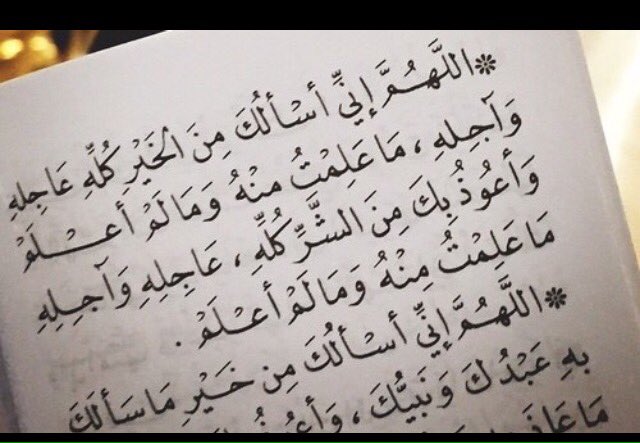 ❊ اللَّهُمَّ إِنِّي أَسْأَلُكَ مِنَ الْخَيْرِ كُلِّهِ عَاجِلِهِ
وَآجِلِهِ ، مَا عَلِمْتُ مِنْهُ وَمَا لَمْ أَعْلَمْ
وَأَعُوذُ بِكَ مِنَ الشَّرِّ كُلِّهِ ، عَاجِلِهِ وَآجِلِهِ
مَا عَلِمْتُ مِنْهُ وَمَا لَمْ أَعْلَمْ .
❊ اللَّهُمَّ إِنِّي أَسْأَلُكَ مِن خَيْرِ مَا سَأَلَكَ
بِهِ عَبْدُكَ وَنَبِيُّكَ ، وَأَعُوذُ
مَا عَاذَ